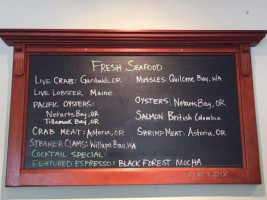 FRESH SEAFOOD
LIVE CRAB: Garibaldi, OR
LIVE LOBSTER: Maine
PACIFIC OYSTERS:
Netarts Bay, OR
Tillamook Bay, OR
CRAB MEAT: Astoria, OR
STEAMER CLAMS: Willapa Bay, WA
COCKTAIL SPECIAL:
FEATURED ESPRESSO: BLACK FOREST MOCHA
MUSSLES: Quilcene Bay, WA
OYSTERS: Netarts Bay, OR
SALMON: British Columbia
SHRIMP MEAT: Astoria, OR
menupix